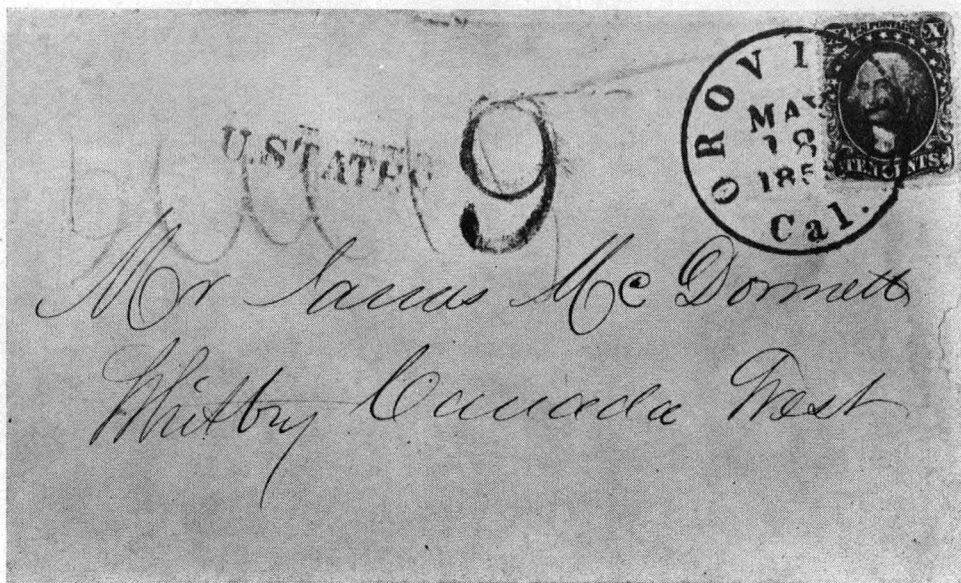 U.STATES
9
OROVI
MAY
18
185
Cal.
U.S. POSTAGE
X
TEN CENTS
Mr James McDonnell
Whitby Canada West